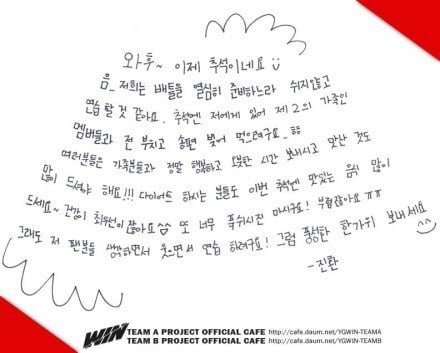 와후~ 이제 추석이네요
음_ 저희는 배틀을 열심히 준비하느라 쉬지않고
연습 할 것 같아요. 추석엔 저에게 있어 제2의 가족인
멤버들과 전 부치고 송편 빚어 먹으려구요_ㅎㅎ
여러분들은 가족분들과 정말 행복하고 오붓한 시간 보내시고 맛난 것도
많이 드셔야 해요!!! 다이어트 하시는 분들도 이번 추석엔 맛있는 음식 많이
드세요~ 건강이 최우선이잖아요ㅅㅅ 또 너무 푹쉬시진 마시구요! 부럽잖아요 ㅠㅠ
그래도 저 팬분들 생각하면서 웃으면서 연습 하려구요! 그럼 풍성한 한가위 보내세요
-진환
WIN TEAM A PROJECT OFFICIAL CAFE http://cafe.daum.net/YGWIN-TEAMA
TEAM B PROJECT OFFICIAL CAFE http://cafe.daum.net/YGWIN-TEAMB